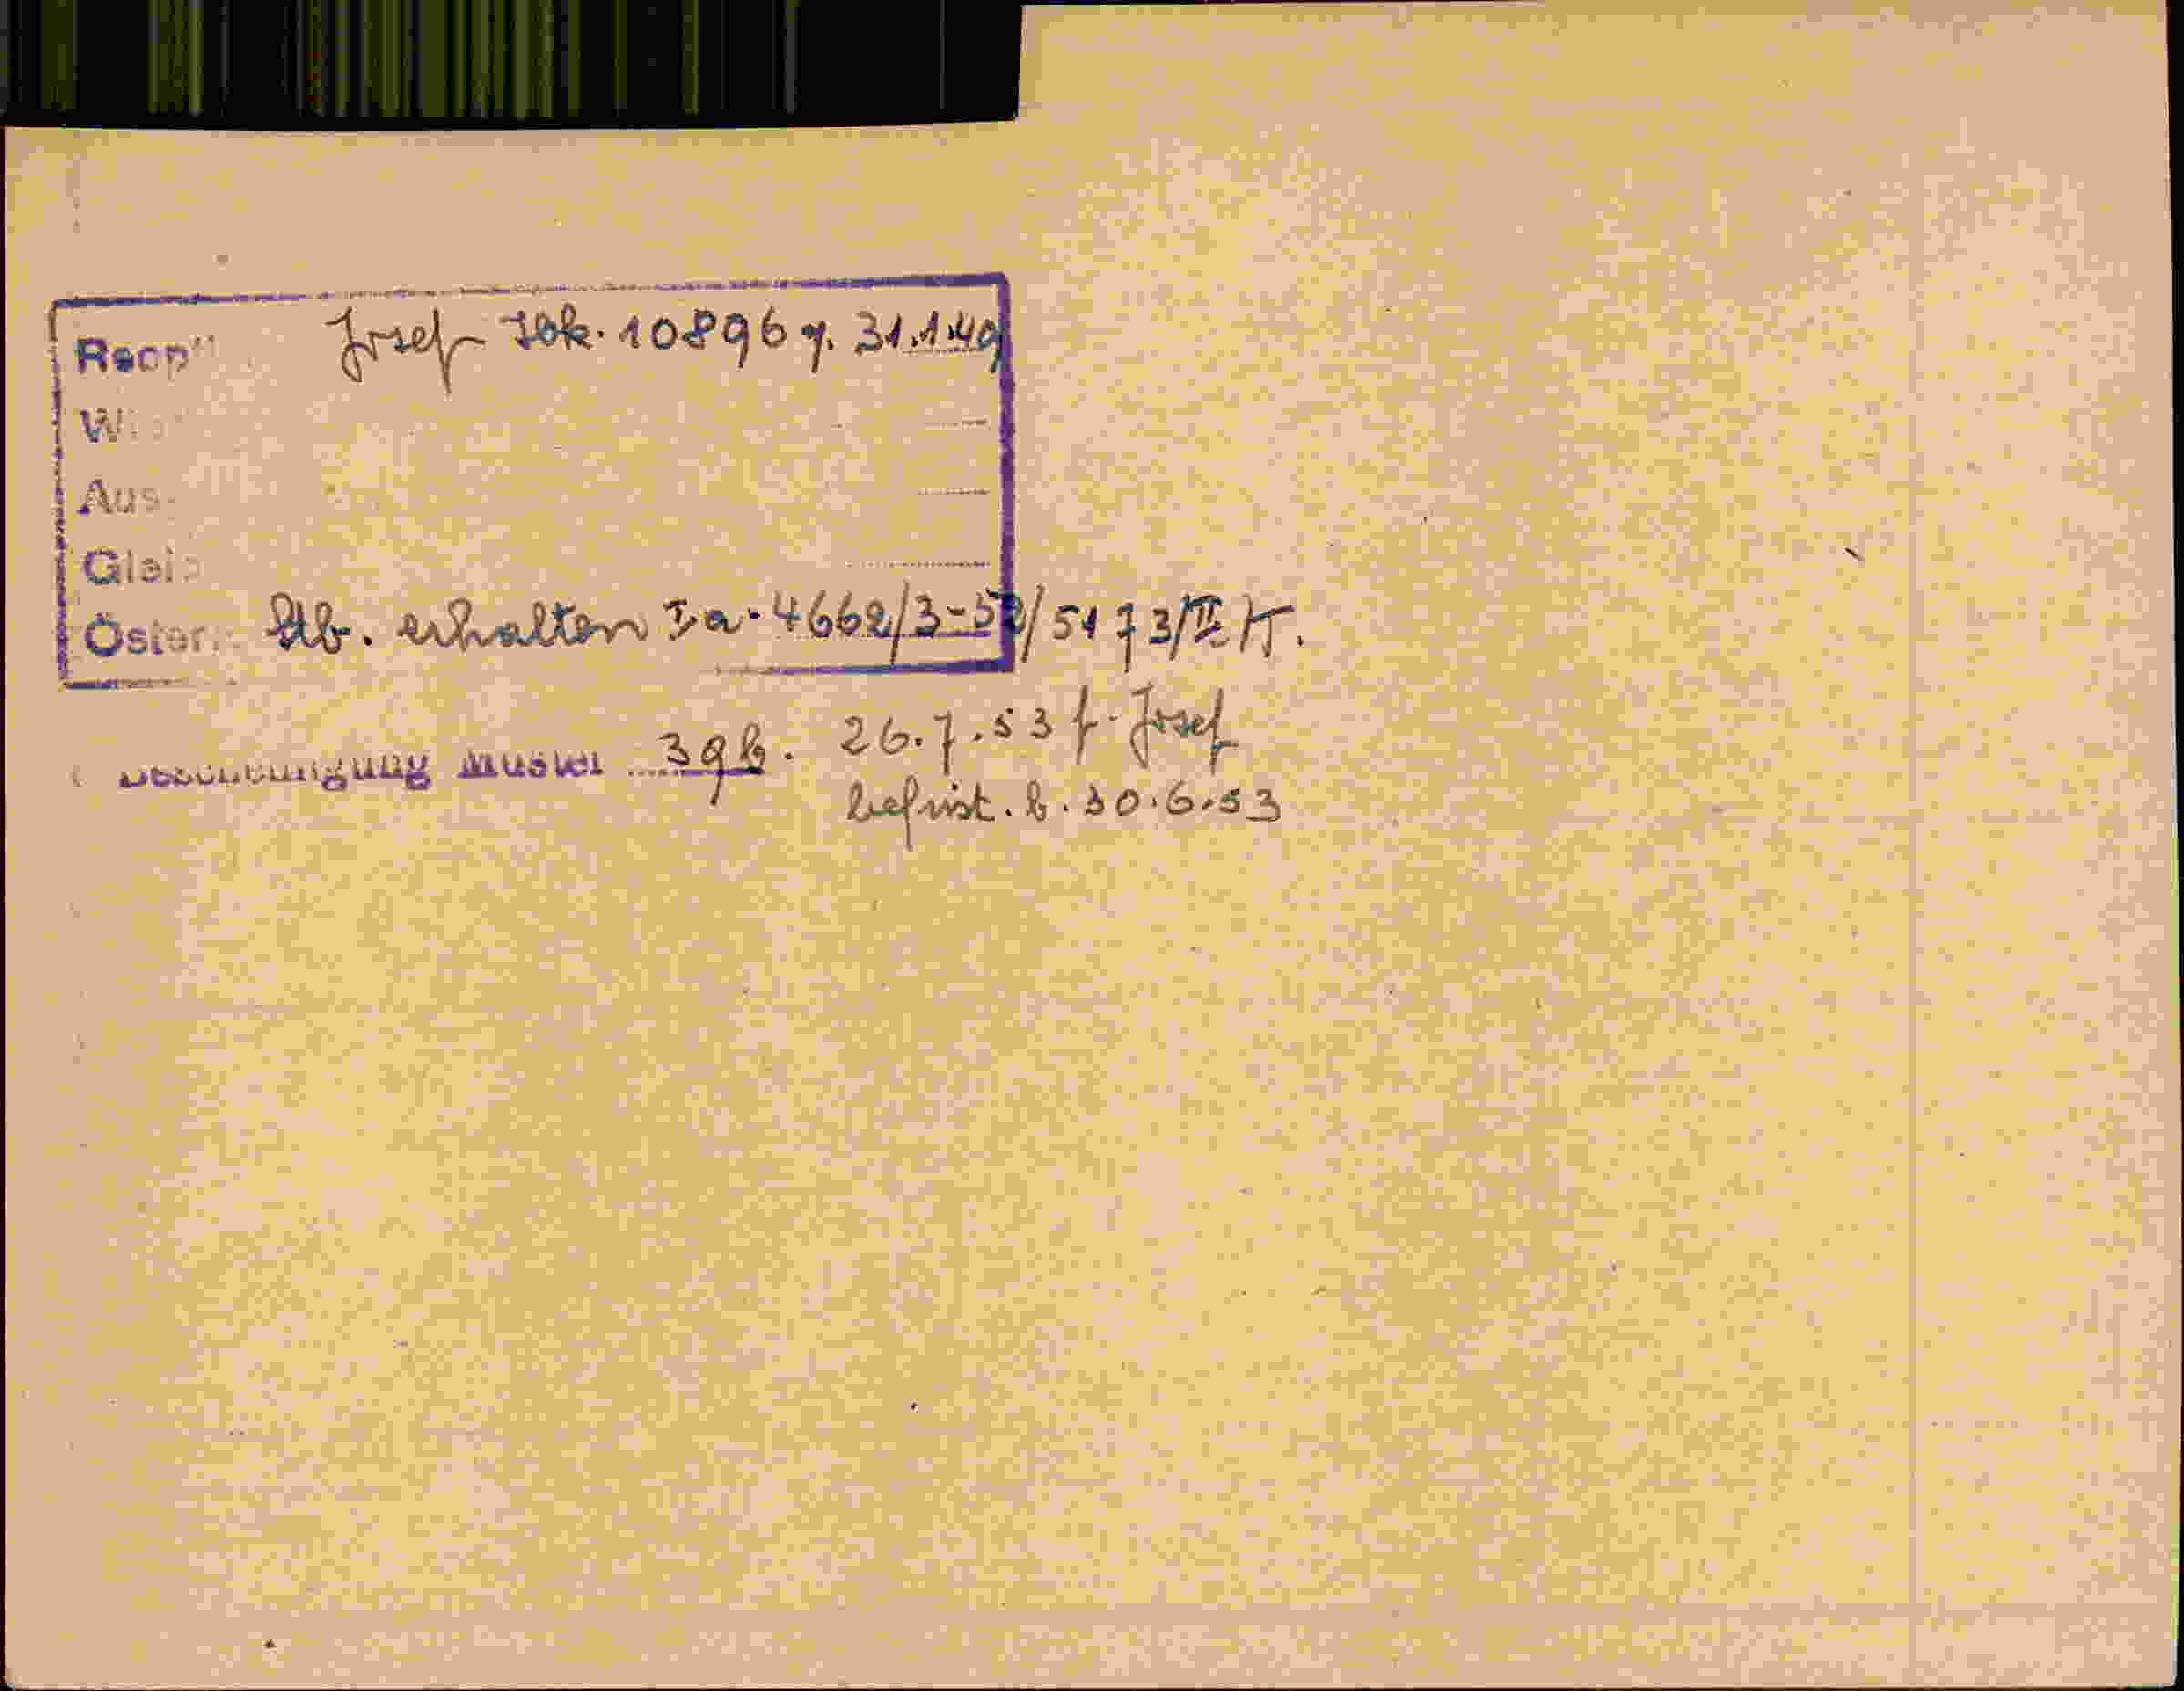 Josef Idk. 10896 v. 31.1.49
Aus
Stb. erhalten Ia. 4662/3-52/5173/III K.
Bescheinigung Muster 39b. 26.7.53 f. Josef
befrist. b. 30.6.53